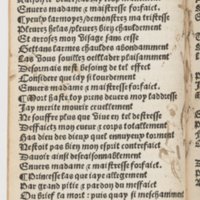 Enuers madame z maistresse forfaict.
Peusy larmoyez/demonstrez ma tristesse
Pleurez helas pleurez bien chauldement
Et arrosez mon visage sans cesse
Gettans larmes chauldes abondamment
Las vous souffrez oeillades plaisamment
Desormais nest besoing de tel effect
Considere que iay si lourdement
Enuers madame z maistresse forfaict.
Mort haste toy, pour deuers moy tadresse
Jay merite mourir cruellement
Ne souffre plus que viue en tel destresse
Deffaictz mon cueur z corps totallement
Haa dieu des dieux quel ennuyeux torment
Nestoit pas bien mon esprit contrefaict
Dauoir ainsi desraisonnablement
Enuers madame z maistresse forfaict.
Princesse las que iaye allegement
Par grand pitie z pardon du meffaict
Ou brief la mort: puis quay si meschamment